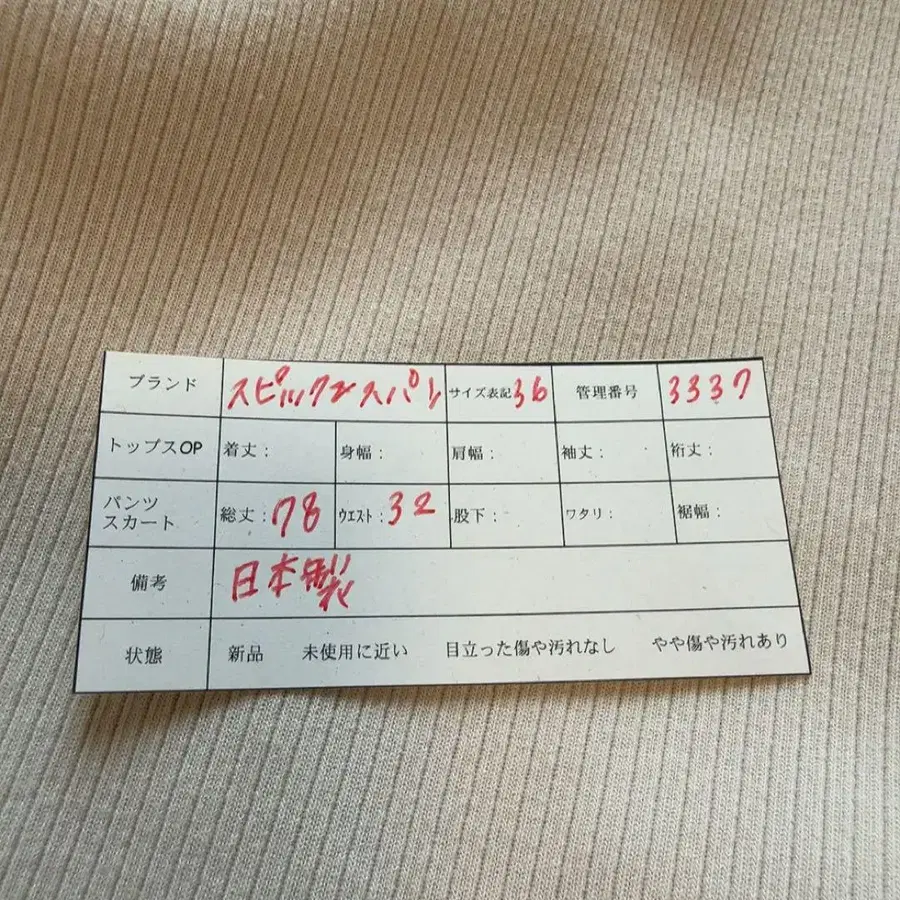 ブランド スピックアンスパン サイズ表記 36 管理番号 3337
トップスOP 着丈: 身幅: 肩幅: 袖丈: 裄丈:
パンツ スカート 総丈:78 ウエスト:32 股下: ワタリ: 裾幅:
備考 日本製
状態 新品 未使用に近い 目立った傷や汚れなし やや傷や汚れあり